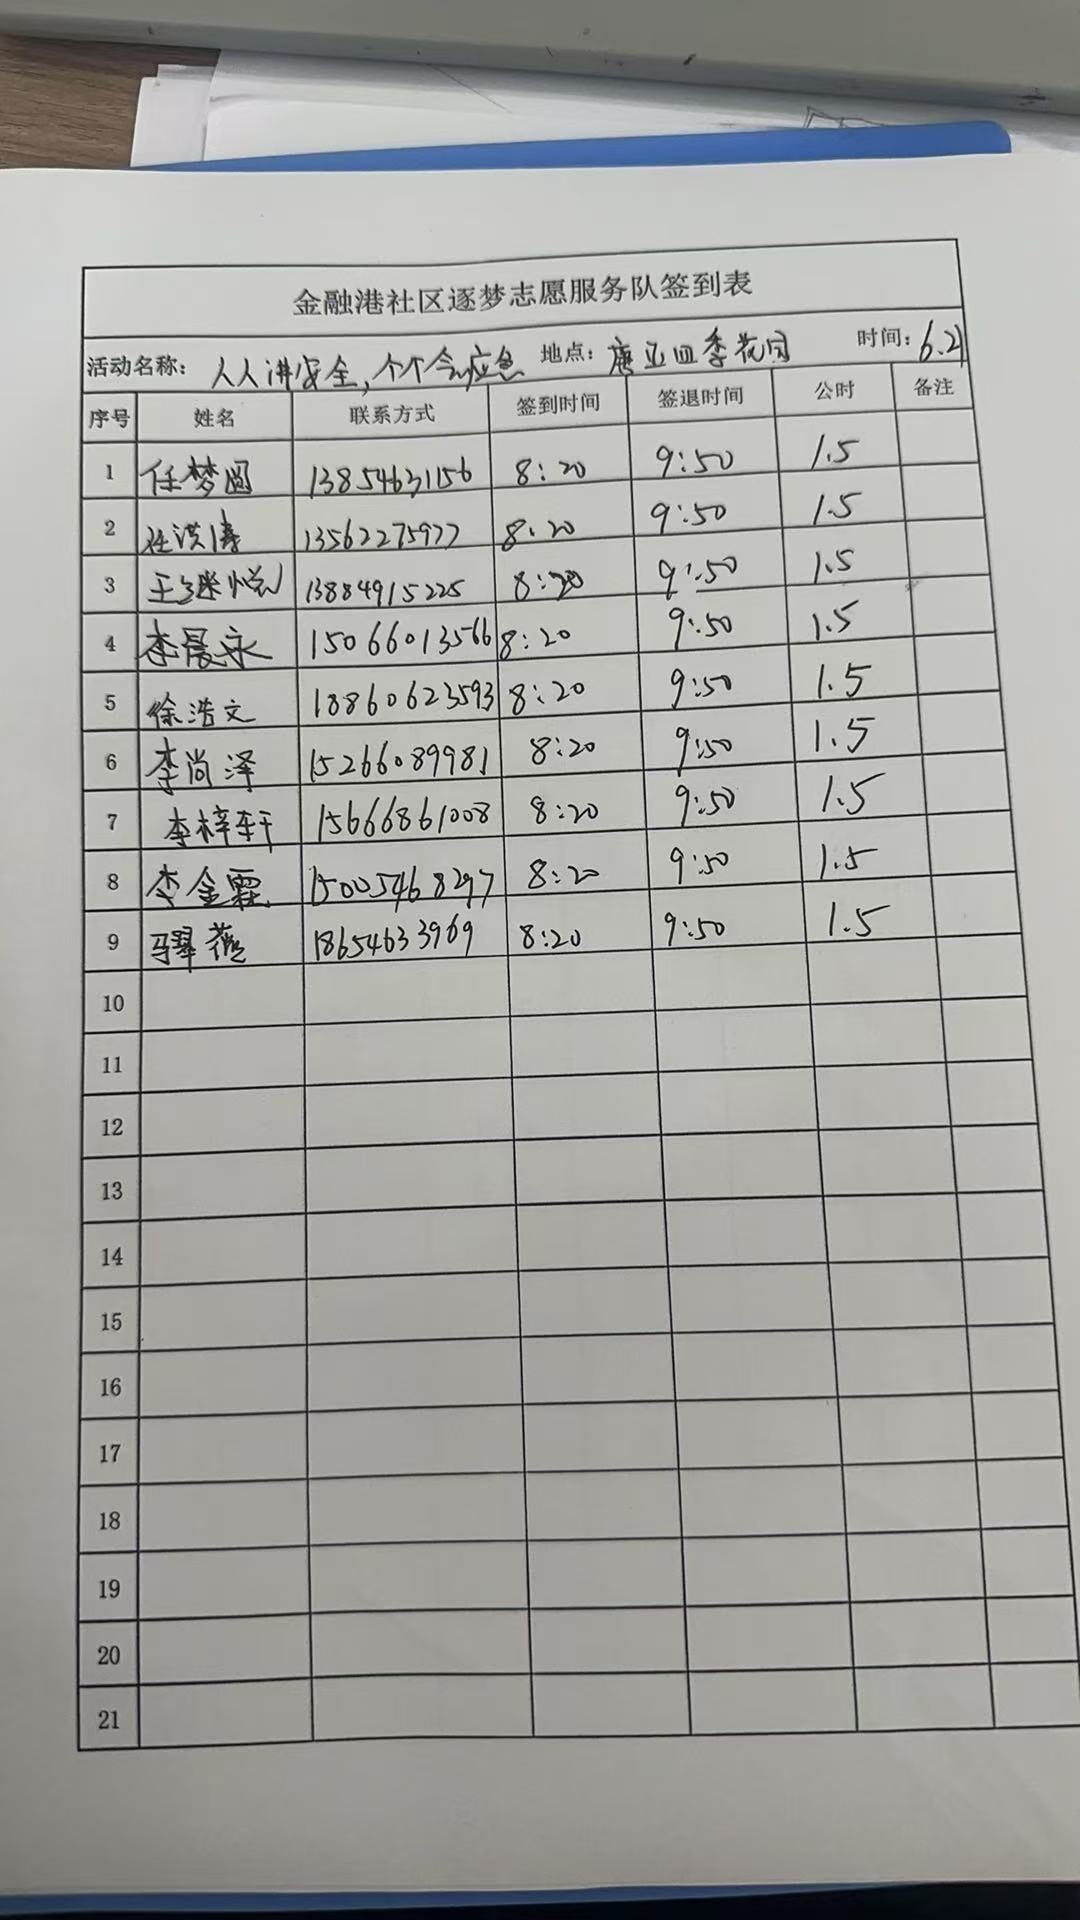 金融港社区逐梦志愿服务队签到表
活动名称: 人人讲安全,个个会应急 地点: 唐正四季花园 时间: 6.21
序号 姓名 联系方式 签到时间 签退时间 公时 备注
1 任梦圆 13854631156 8:20 9:50 1.5
2 任洪涛 13562275977 8:20 9:50 1.5
3 王 悦 13884915225 8:20 9:50 1.5
4 李晨永 15066013566 8:20 9:50 1.5
5 徐浩文 18860623593 8:20 9:50 1.5
6 李尚泽 15266089981 8:20 9:50 1.5
7 李梓轩 15666861008 8:20 9:50 1.5
8 李金霖 15005468297 8:20 9:50 1.5
9 18654633969 8:20 9:50 1.5
10
11
12
13
14
15
16
17
18
19
20
21